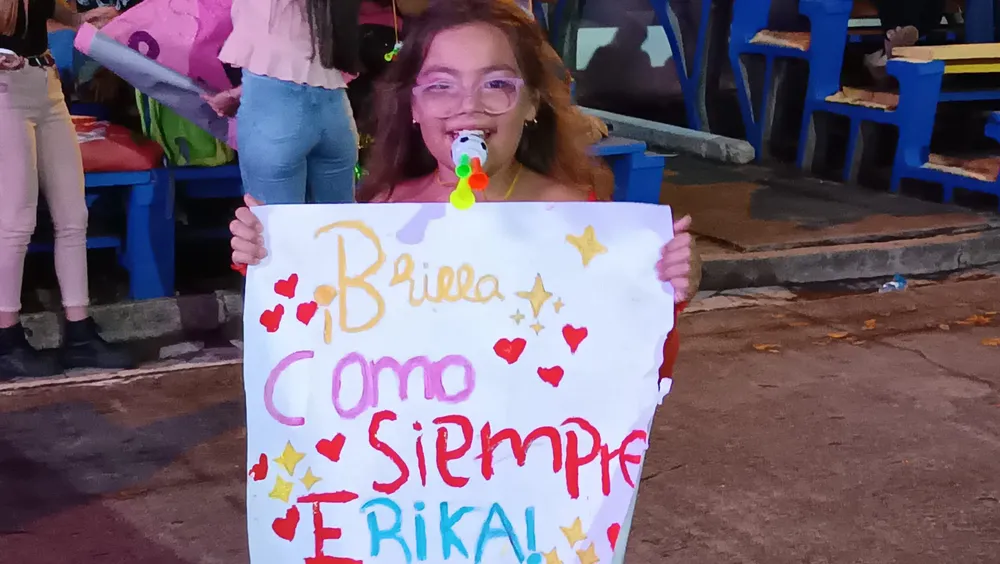 ¡Brilla
Como
Siempre
Erika!